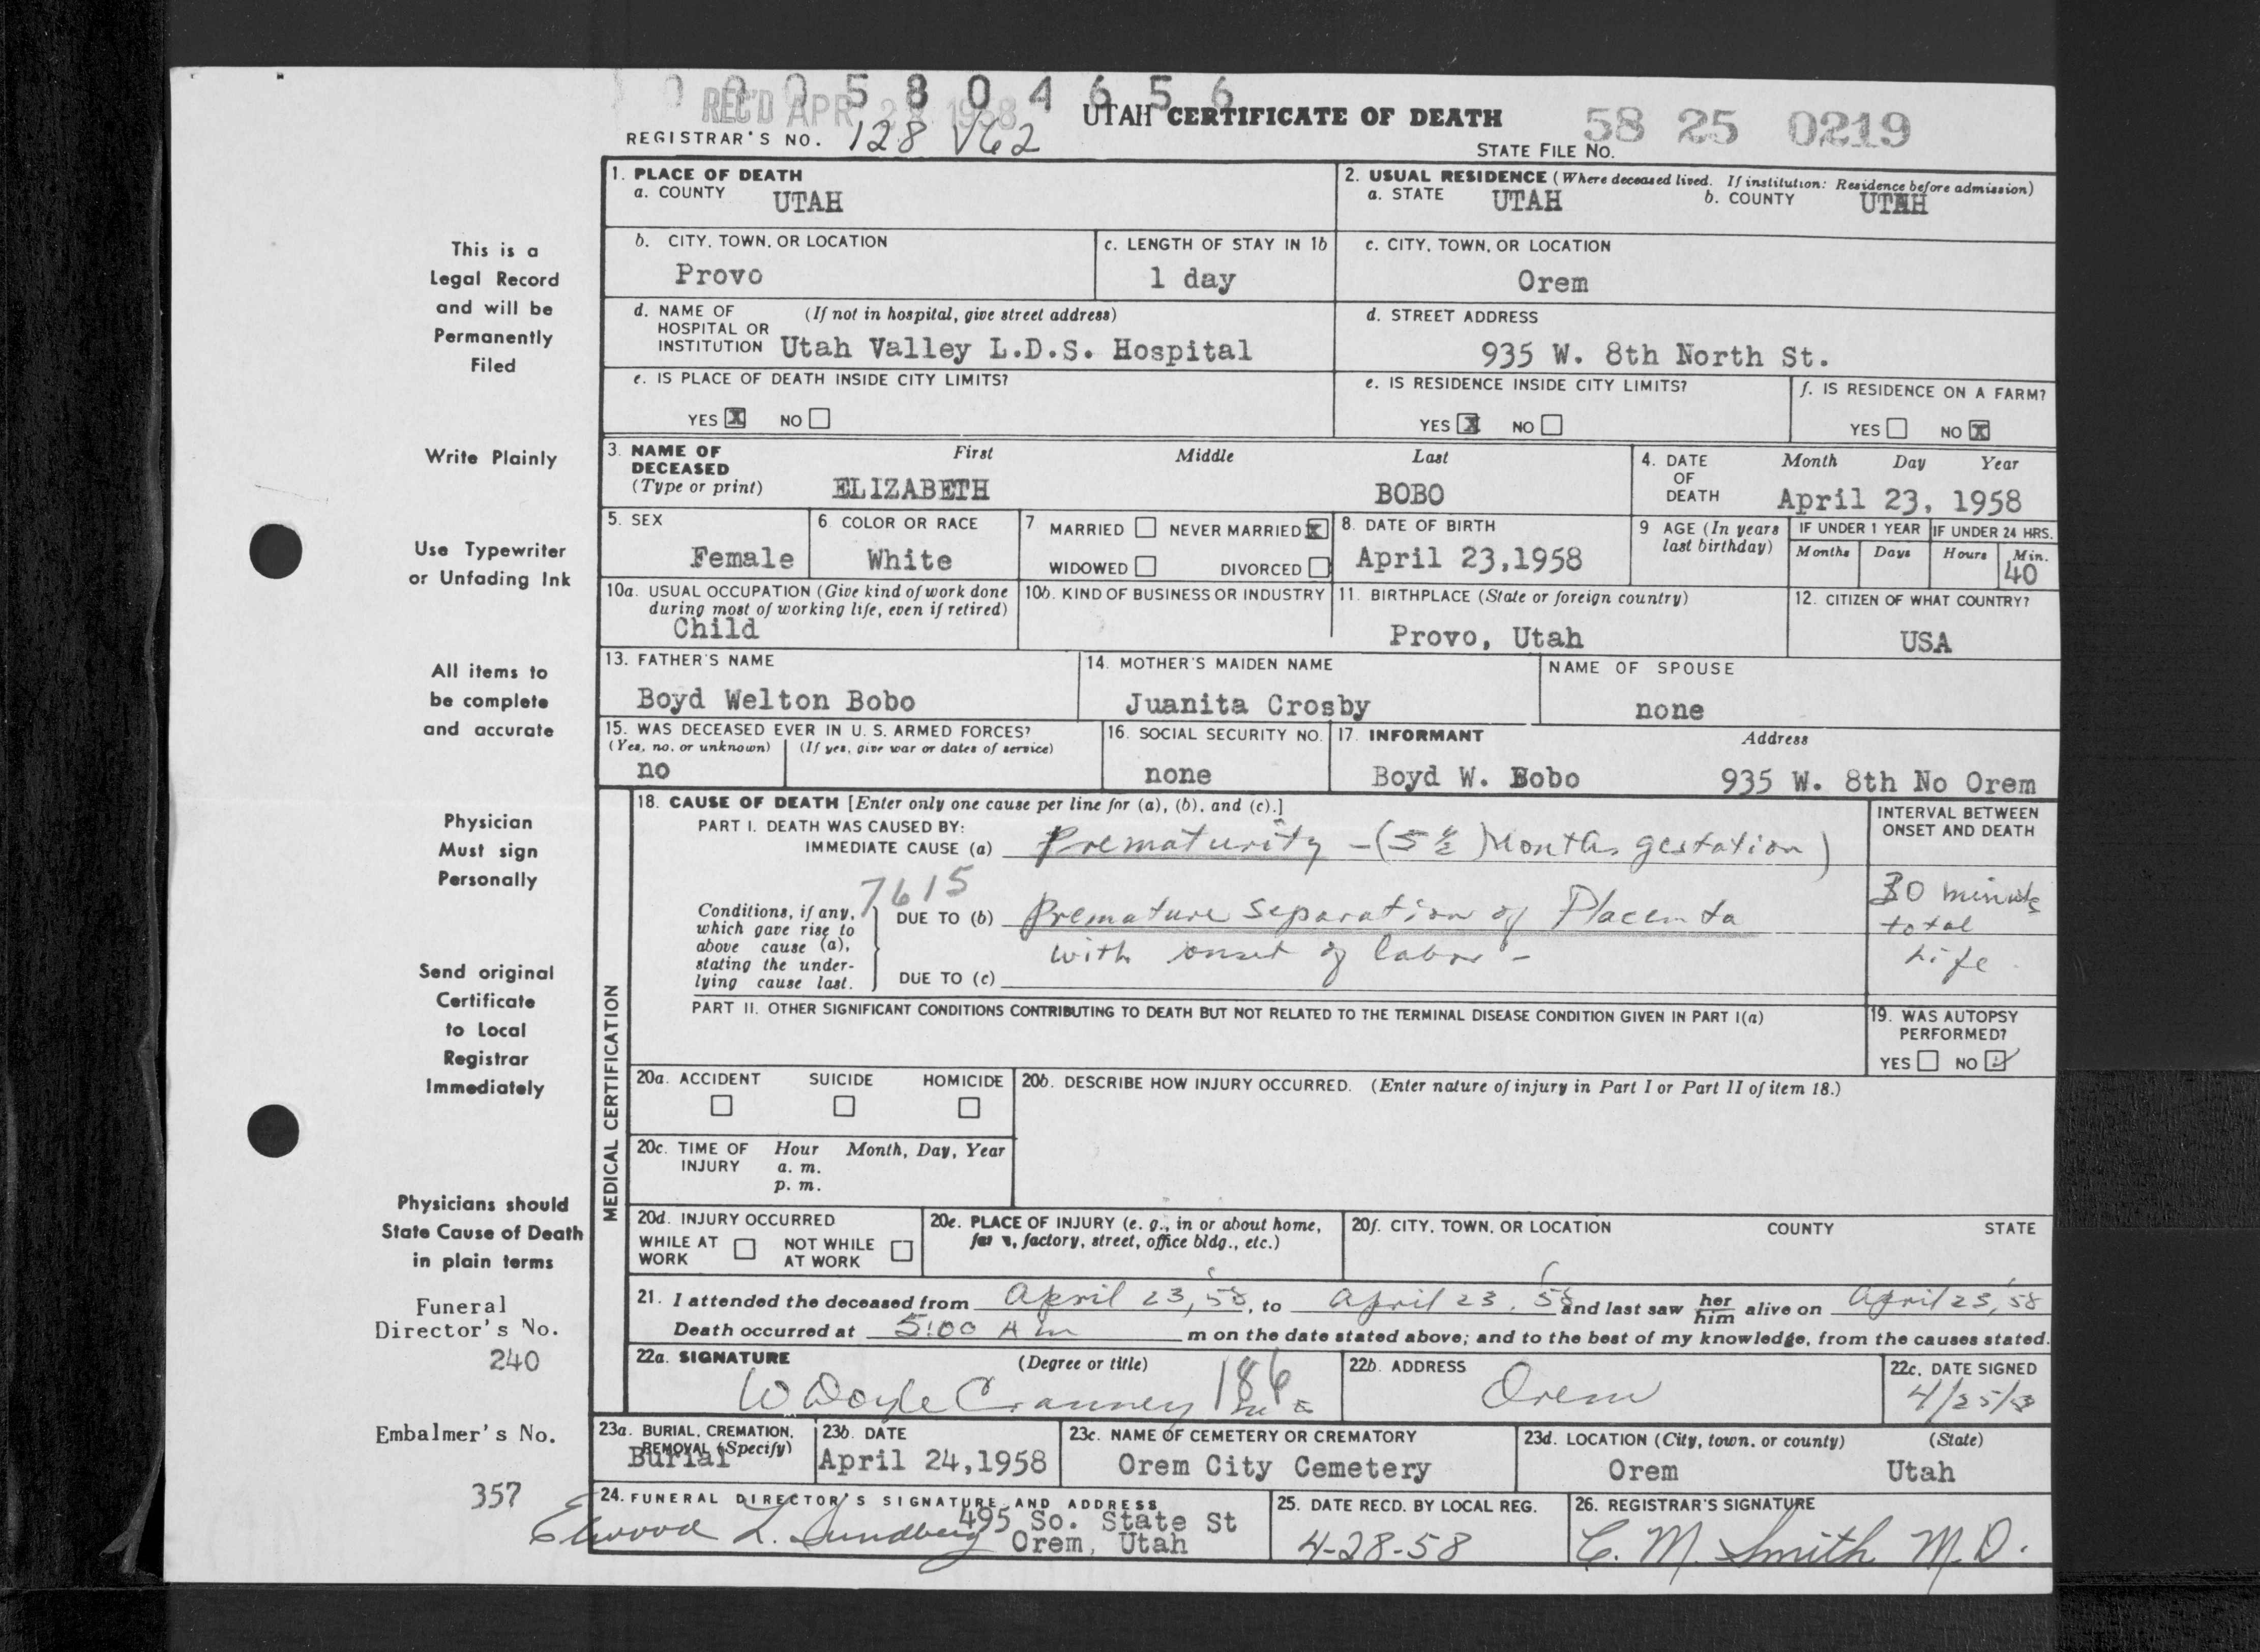 0 0 0 5 8 0 4 6 5 6
REC'D APR 28 1958
UTAH CERTIFICATE OF DEATH
58 25 0219
REGISTRAR'S NO. 128 V62
STATE FILE NO.
1. PLACE OF DEATH
a. COUNTY UTAH
2. USUAL RESIDENCE (Where deceased lived. If institution: Residence before admission)
a. STATE UTAH b. COUNTY UTAH
b. CITY, TOWN, OR LOCATION
Provo
c. LENGTH OF STAY IN 1b
1 day
c. CITY, TOWN, OR LOCATION
Orem
d. NAME OF HOSPITAL OR INSTITUTION (If not in hospital, give street address)
Utah Valley L.D.S. Hospital
d. STREET ADDRESS
935 W. 8th North St.
e. IS PLACE OF DEATH INSIDE CITY LIMITS?
YES X NO
e. IS RESIDENCE INSIDE CITY LIMITS?
YES X NO
f. IS RESIDENCE ON A FARM?
YES NO X
3. NAME OF DECEASED (Type or print)
First Middle Last
ELIZABETH BOBO
4. DATE OF DEATH
Month Day Year
April 23, 1958
5. SEX
Female
6 COLOR OR RACE
White
7 MARRIED NEVER MARRIED X
WIDOWED DIVORCED
8. DATE OF BIRTH
April 23,1958
9 AGE (In years last birthday)
IF UNDER 1 YEAR
Months Days
IF UNDER 24 HRS.
Hours Min.
40
10a. USUAL OCCUPATION (Give kind of work done during most of working life, even if retired)
Child
10b. KIND OF BUSINESS OR INDUSTRY
11. BIRTHPLACE (State or foreign country)
Provo, Utah
12. CITIZEN OF WHAT COUNTRY?
USA
13. FATHER'S NAME
Boyd Welton Bobo
14. MOTHER'S MAIDEN NAME
Juanita Crosby
NAME OF SPOUSE
none
15. WAS DECEASED EVER IN U. S. ARMED FORCES?
(Yes, no, or unknown) (If yes, give war or dates of service)
no
16. SOCIAL SECURITY NO.
none
17. INFORMANT Address
Boyd W. Bobo 935 W. 8th No Orem
MEDICAL CERTIFICATION
18. CAUSE OF DEATH [Enter only one cause per line for (a), (b), and (c).]
PART I. DEATH WAS CAUSED BY:
IMMEDIATE CAUSE (a) Prematurity - (5 1/2 Months gestation)
7615
Conditions, if any, which gave rise to above cause (a), stating the underlying cause last.
DUE TO (b) Premature Separation of Placenta
with onset of labor -
DUE TO (c)
INTERVAL BETWEEN ONSET AND DEATH
30 minute
total
Life
PART II. OTHER SIGNIFICANT CONDITIONS CONTRIBUTING TO DEATH BUT NOT RELATED TO THE TERMINAL DISEASE CONDITION GIVEN IN PART I(a)
19. WAS AUTOPSY PERFORMED?
YES NO ✓
20a. ACCIDENT SUICIDE HOMICIDE
20b. DESCRIBE HOW INJURY OCCURRED. (Enter nature of injury in Part I or Part II of item 18.)
20c. TIME OF INJURY Hour Month, Day, Year
a. m.
p. m.
20d. INJURY OCCURRED
WHILE AT WORK NOT WHILE AT WORK
20e. PLACE OF INJURY (e. g., in or about home, farm, factory, street, office bldg., etc.)
20f. CITY, TOWN, OR LOCATION COUNTY STATE
21. I attended the deceased from April 23, 58, to April 23, 58 and last saw her him alive on April 23, 58
Death occurred at 5:00 A m m on the date stated above; and to the best of my knowledge, from the causes stated.
22a. SIGNATURE (Degree or title)
W Doyle Cranney 186
22b. ADDRESS
Orem
22c. DATE SIGNED
4/25/58
23a. BURIAL, CREMATION, REMOVAL (Specify)
Burial
23b. DATE
April 24,1958
23c. NAME OF CEMETERY OR CREMATORY
Orem City Cemetery
23d. LOCATION (City, town, or county) (State)
Orem Utah
24. FUNERAL DIRECTOR'S SIGNATURE AND ADDRESS
Elwood L. Sundberg 495 So. State St
Orem, Utah
25. DATE RECD. BY LOCAL REG.
4-28-58
26. REGISTRAR'S SIGNATURE
C. M. Smith M.D.
This is a
Legal Record
and will be
Permanently
Filed
Write Plainly
Use Typewriter
or Unfading Ink
All items to
be complete
and accurate
Physician
Must sign
Personally
Send original
Certificate
to Local
Registrar
Immediately
Physicians should
State Cause of Death
in plain terms
Funeral
Director's No.
240
Embalmer's No.
357